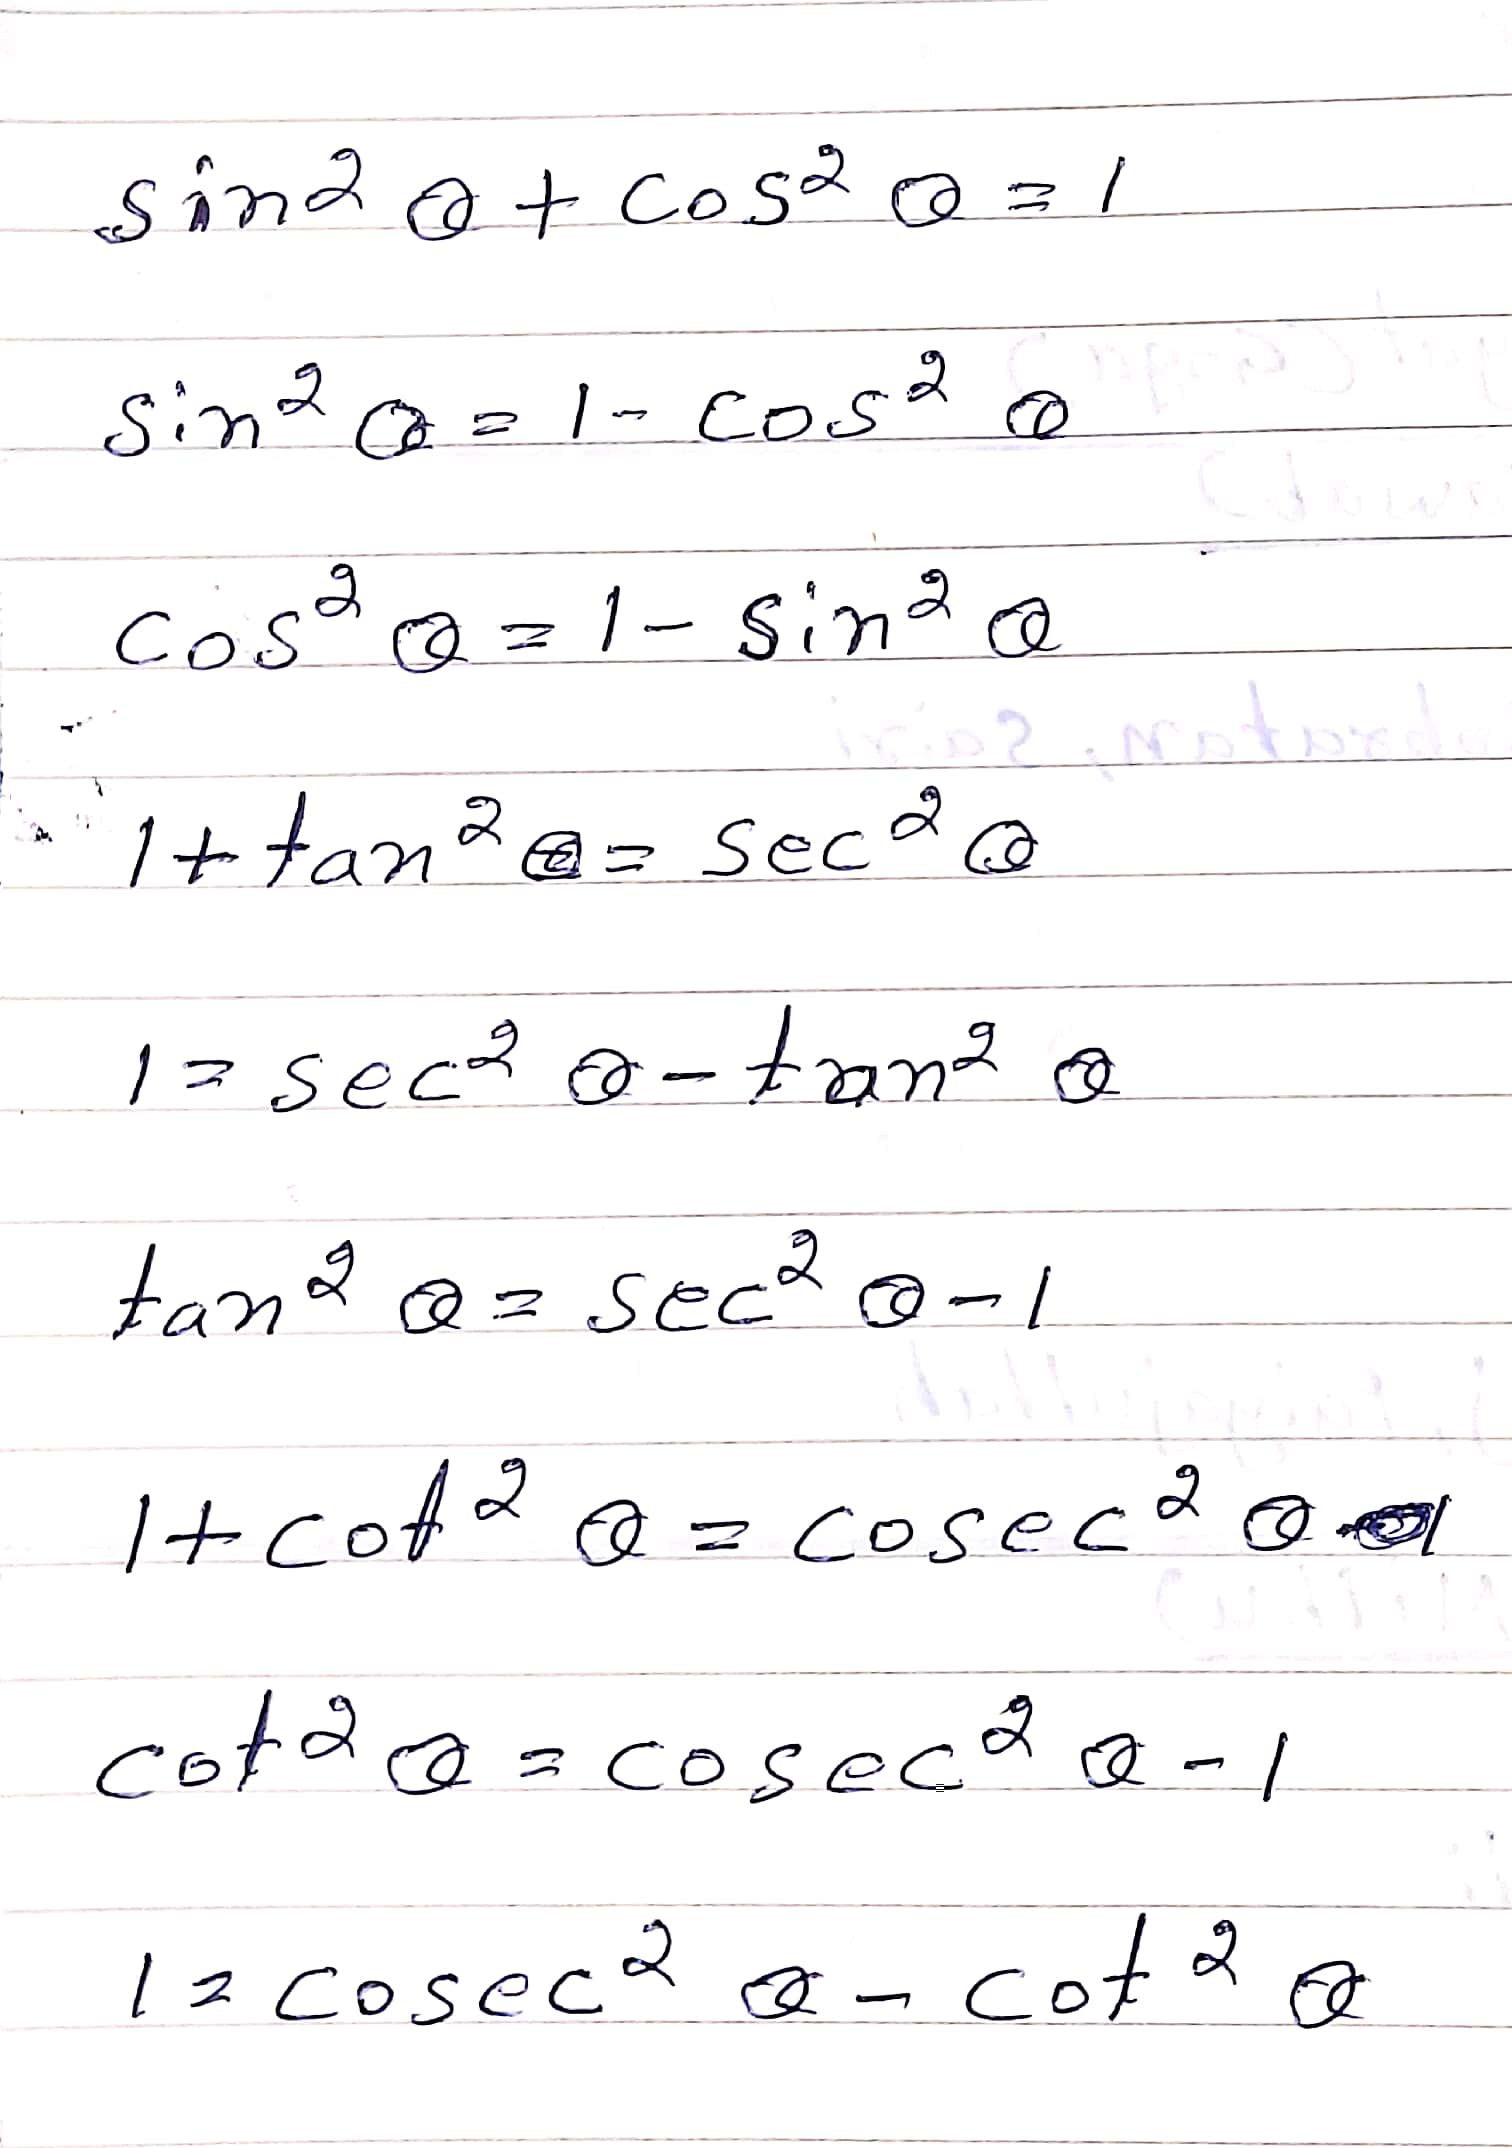 sin² θ + cos² θ = 1
sin² θ = 1 - cos² θ
cos² θ = 1 - sin² θ
1 + tan² θ = sec² θ
1 = sec² θ - tan² θ
tan² θ = sec² θ - 1
1 + cot² θ = cosec² θ
cot² θ = cosec² θ - 1
1 = cosec² θ - cot² θ